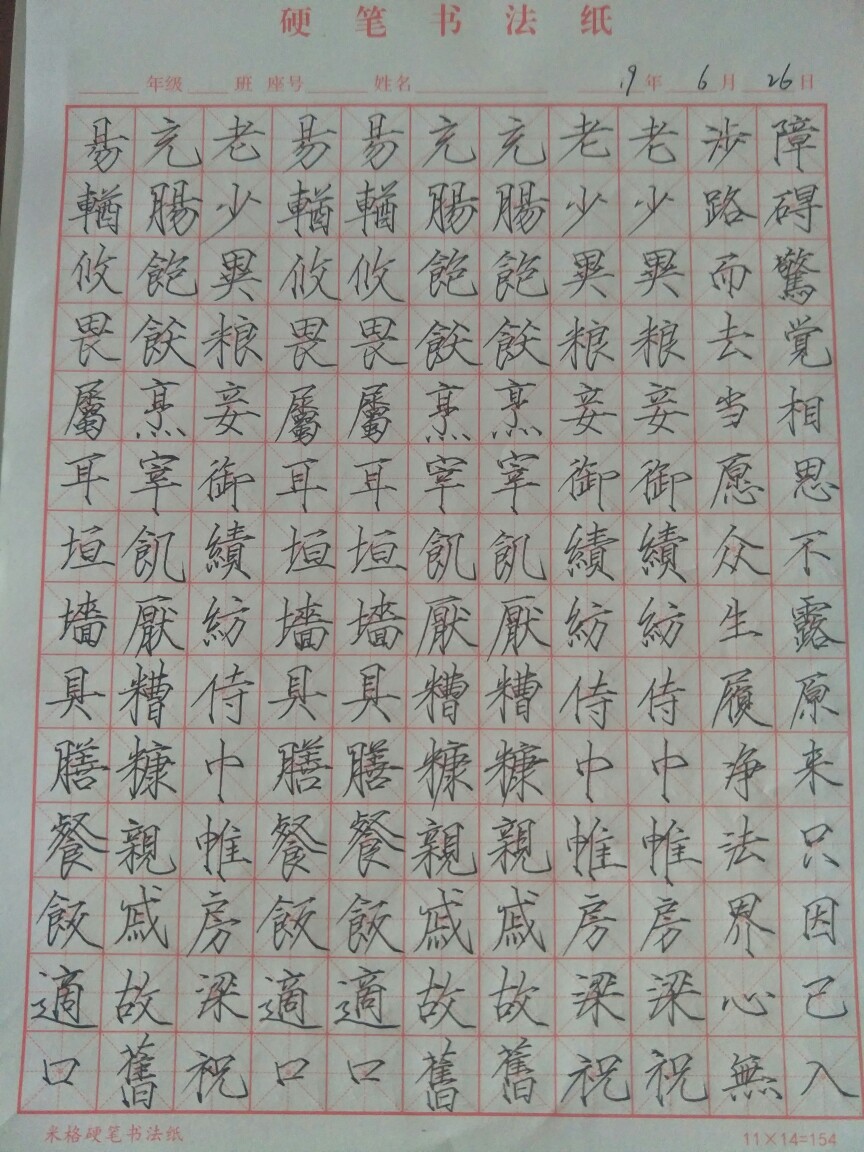 硬笔书法纸
年级 班 座号 姓名 19年 6月 26日
障碍驚觉相思不露原来只因已入
涉路而去当愿众生履净法界心無
老少異粮妾御績紡侍巾帷房梁祝
老少異粮妾御績紡侍巾帷房梁祝
充腸飽飫烹宰飢厭糟糠親戚故舊
充腸飽飫烹宰飢厭糟糠親戚故舊
易輶攸畏屬耳垣墙具膳餐飯適口
易輶攸畏屬耳垣墙具膳餐飯適口
老少異粮妾御績紡侍巾帷房梁祝
充腸飽飫烹宰飢厭糟糠親戚故舊
易輶攸畏屬耳垣墙具膳餐飯適口
米格硬笔书法纸 11×14=154